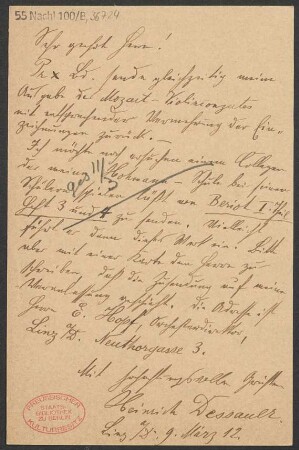 55 Nachl 100/B, 36724
Sehr geehrter Herr!
Per x Bd. sende gleichzeitig meine
Ausgabe des Mozart-Violinconzertes
mit entsprechender Vermehrung der Ein-
zeichnungen zurück. –
Ich möchte noch ersuchen einem Collegen
der meine Hohmann-Schule bei seinen
Schülern lässt von Beriot I. Theil
Heft 3 und 4 zu senden. Vielleicht
führt er dann dieses Werk ein. Bitte
aber mit einer Karte dem Herrn zu
schreiben, daß die Zusendung auf meine
Veranlassung geschieht. Die Adresse ist
Herr E. Hopf, Orchesterdirector,
Linz a/D. Neuthorgasse 3.
Mit hochachtungsvollen Grüßen
Heinrich Dessauer
Linz a/D. 9. März 12.
PREUSSISCHER
STAATS-
BIBLIOTHEK
ZU BERLIN
KULTURBESITZ